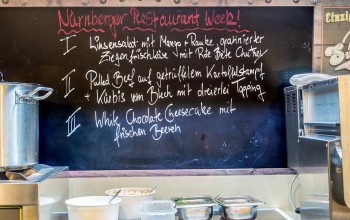 Nürnberger Restaurant Week!
I Linsensalat mit Mango + Rauke, gratinierter
Ziegenfrischkäse mit Rote Bete Chutney
II Pulled Beef auf getrüffeltem Kartoffelstampf
+ Kürbis vom Blech mit dreierlei Topping
III White Chocolate Cheesecake mit
frischen Beeren